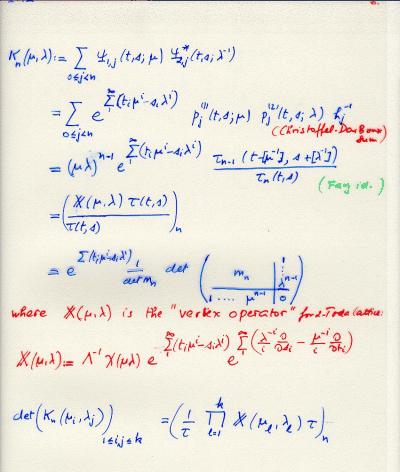 K_n(μ,λ) := Σ_{0≤j<n} Ψ_{1,j}(t,s;μ) Ψ*_{2,j}(t,s;λ^{-1})
= Σ_{0≤j<n} e^{Σ_1^∞(t_i μ^i - s_i λ^i)} p_j^{(1)}(t,s;μ) p_j^{(2)}(t,s;λ) h_j^{-1}
(Christoffel-Darboux sum)
= (μλ)^{n-1} e^{Σ_1^∞(t_i μ^i - s_i λ^i)} τ_{n-1}(t-[μ^{-1}], s+[λ^{-1}]) / τ_n(t,s)
(Fay id.)
= (𝕏(μ,λ) τ(t,s) / τ(t,s))_n
= e^{Σ(t_i μ^i - s_i λ^i)} 1/det m_n det ( m_n | 1 ⋮ λ^{n-1} ; 1 .... μ^{n-1} | 0 )
where 𝕏(μ,λ) is the "vertex operator" for 2-Toda lattice:
𝕏(μ,λ) := Λ^{-1} χ(μλ) e^{Σ_1^∞(t_i μ^i - s_i λ^i)} e^{Σ_1^∞(λ^{-i}/i ∂/∂s_i - μ^{-i}/i ∂/∂t_i)}
det(K_n(μ_i,λ_j))_{1≤i,j≤k} = (1/τ ∏_{l=1}^k 𝕏(μ_l,λ_l) τ)_n